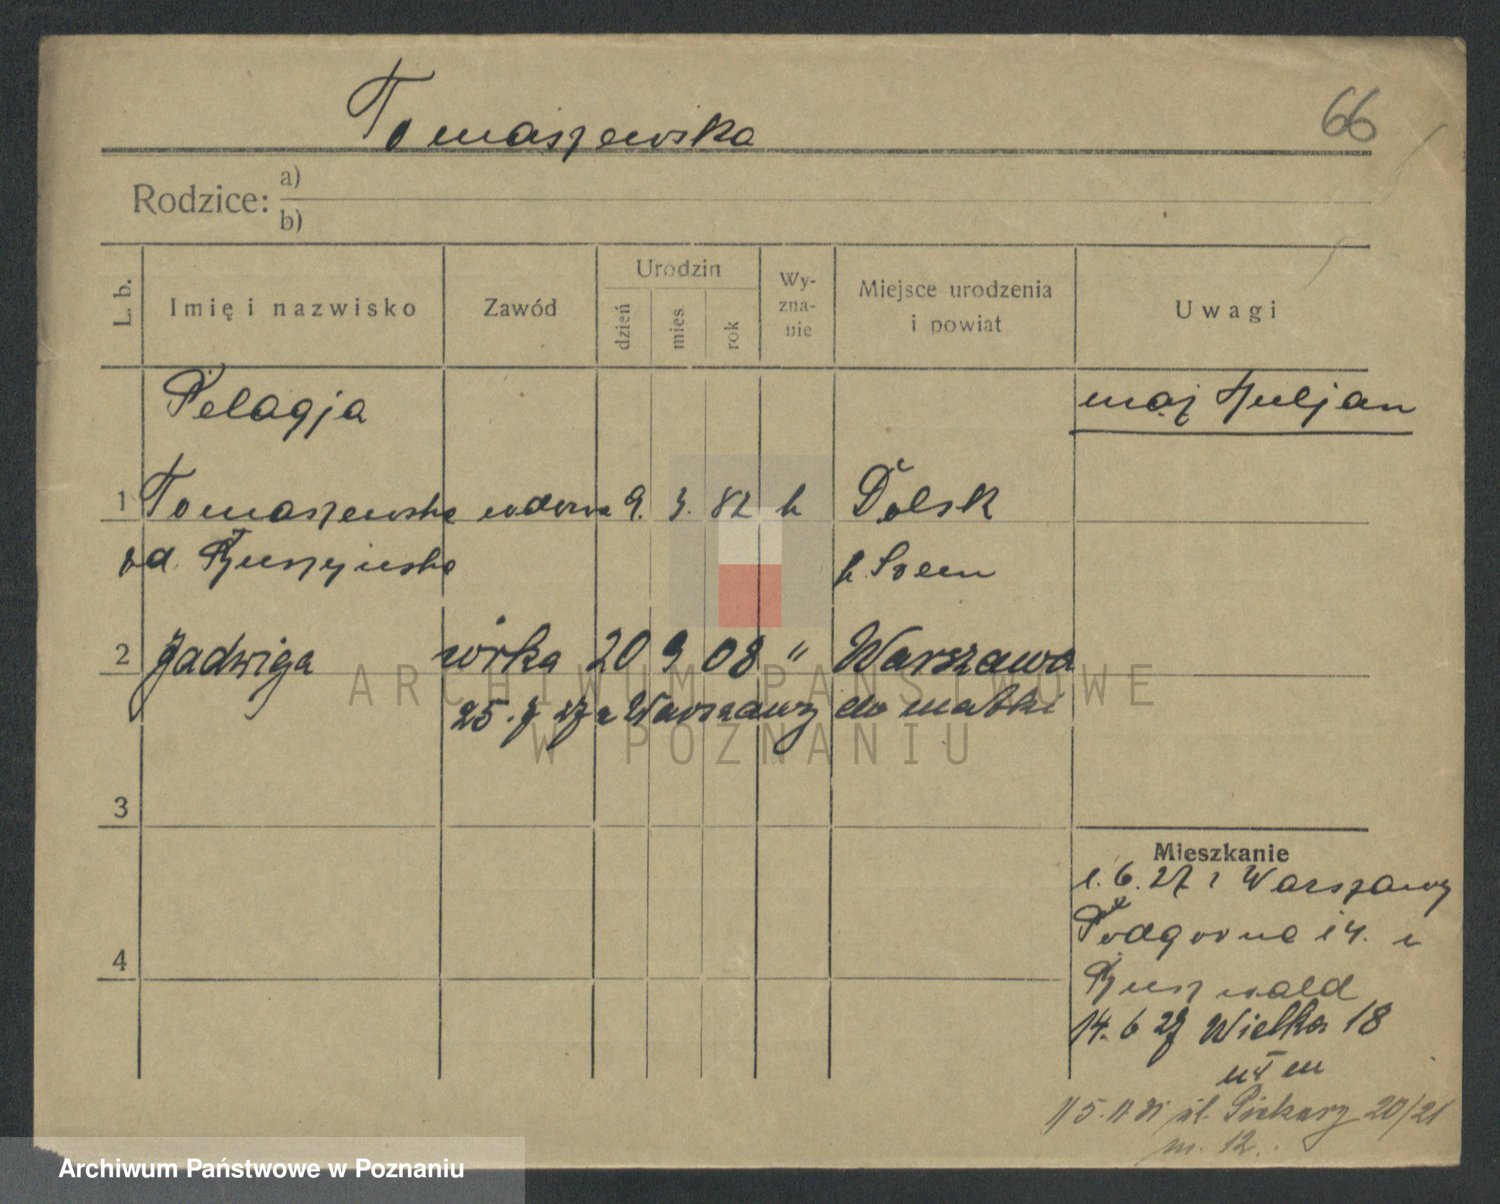 Tomaszewska
66
Rodzice: a)
b)
L. b. Imię i nazwisko Zawód Urodzin dzień mies. rok Wy-zna-nie Miejsce urodzenia i powiat Uwagi
Pelagja mąż Juljan
1 Tomaszewska wdowa 9. 3. 82 k Dolsk
p. Śrem
2 Jadwiga córka 20 9 08 " Warszawa
25. 7 27 z Warszawy do matki
3
Mieszkanie
1.6.27 z Warszawy
4
Podgórna 14. u
14.6 27 Wielka 18
wł m
ul. Piekary 20/21
m. 12.
ARCHIWUM PAŃSTWOWE
W POZNANIU
Archiwum Państwowe w Poznaniu